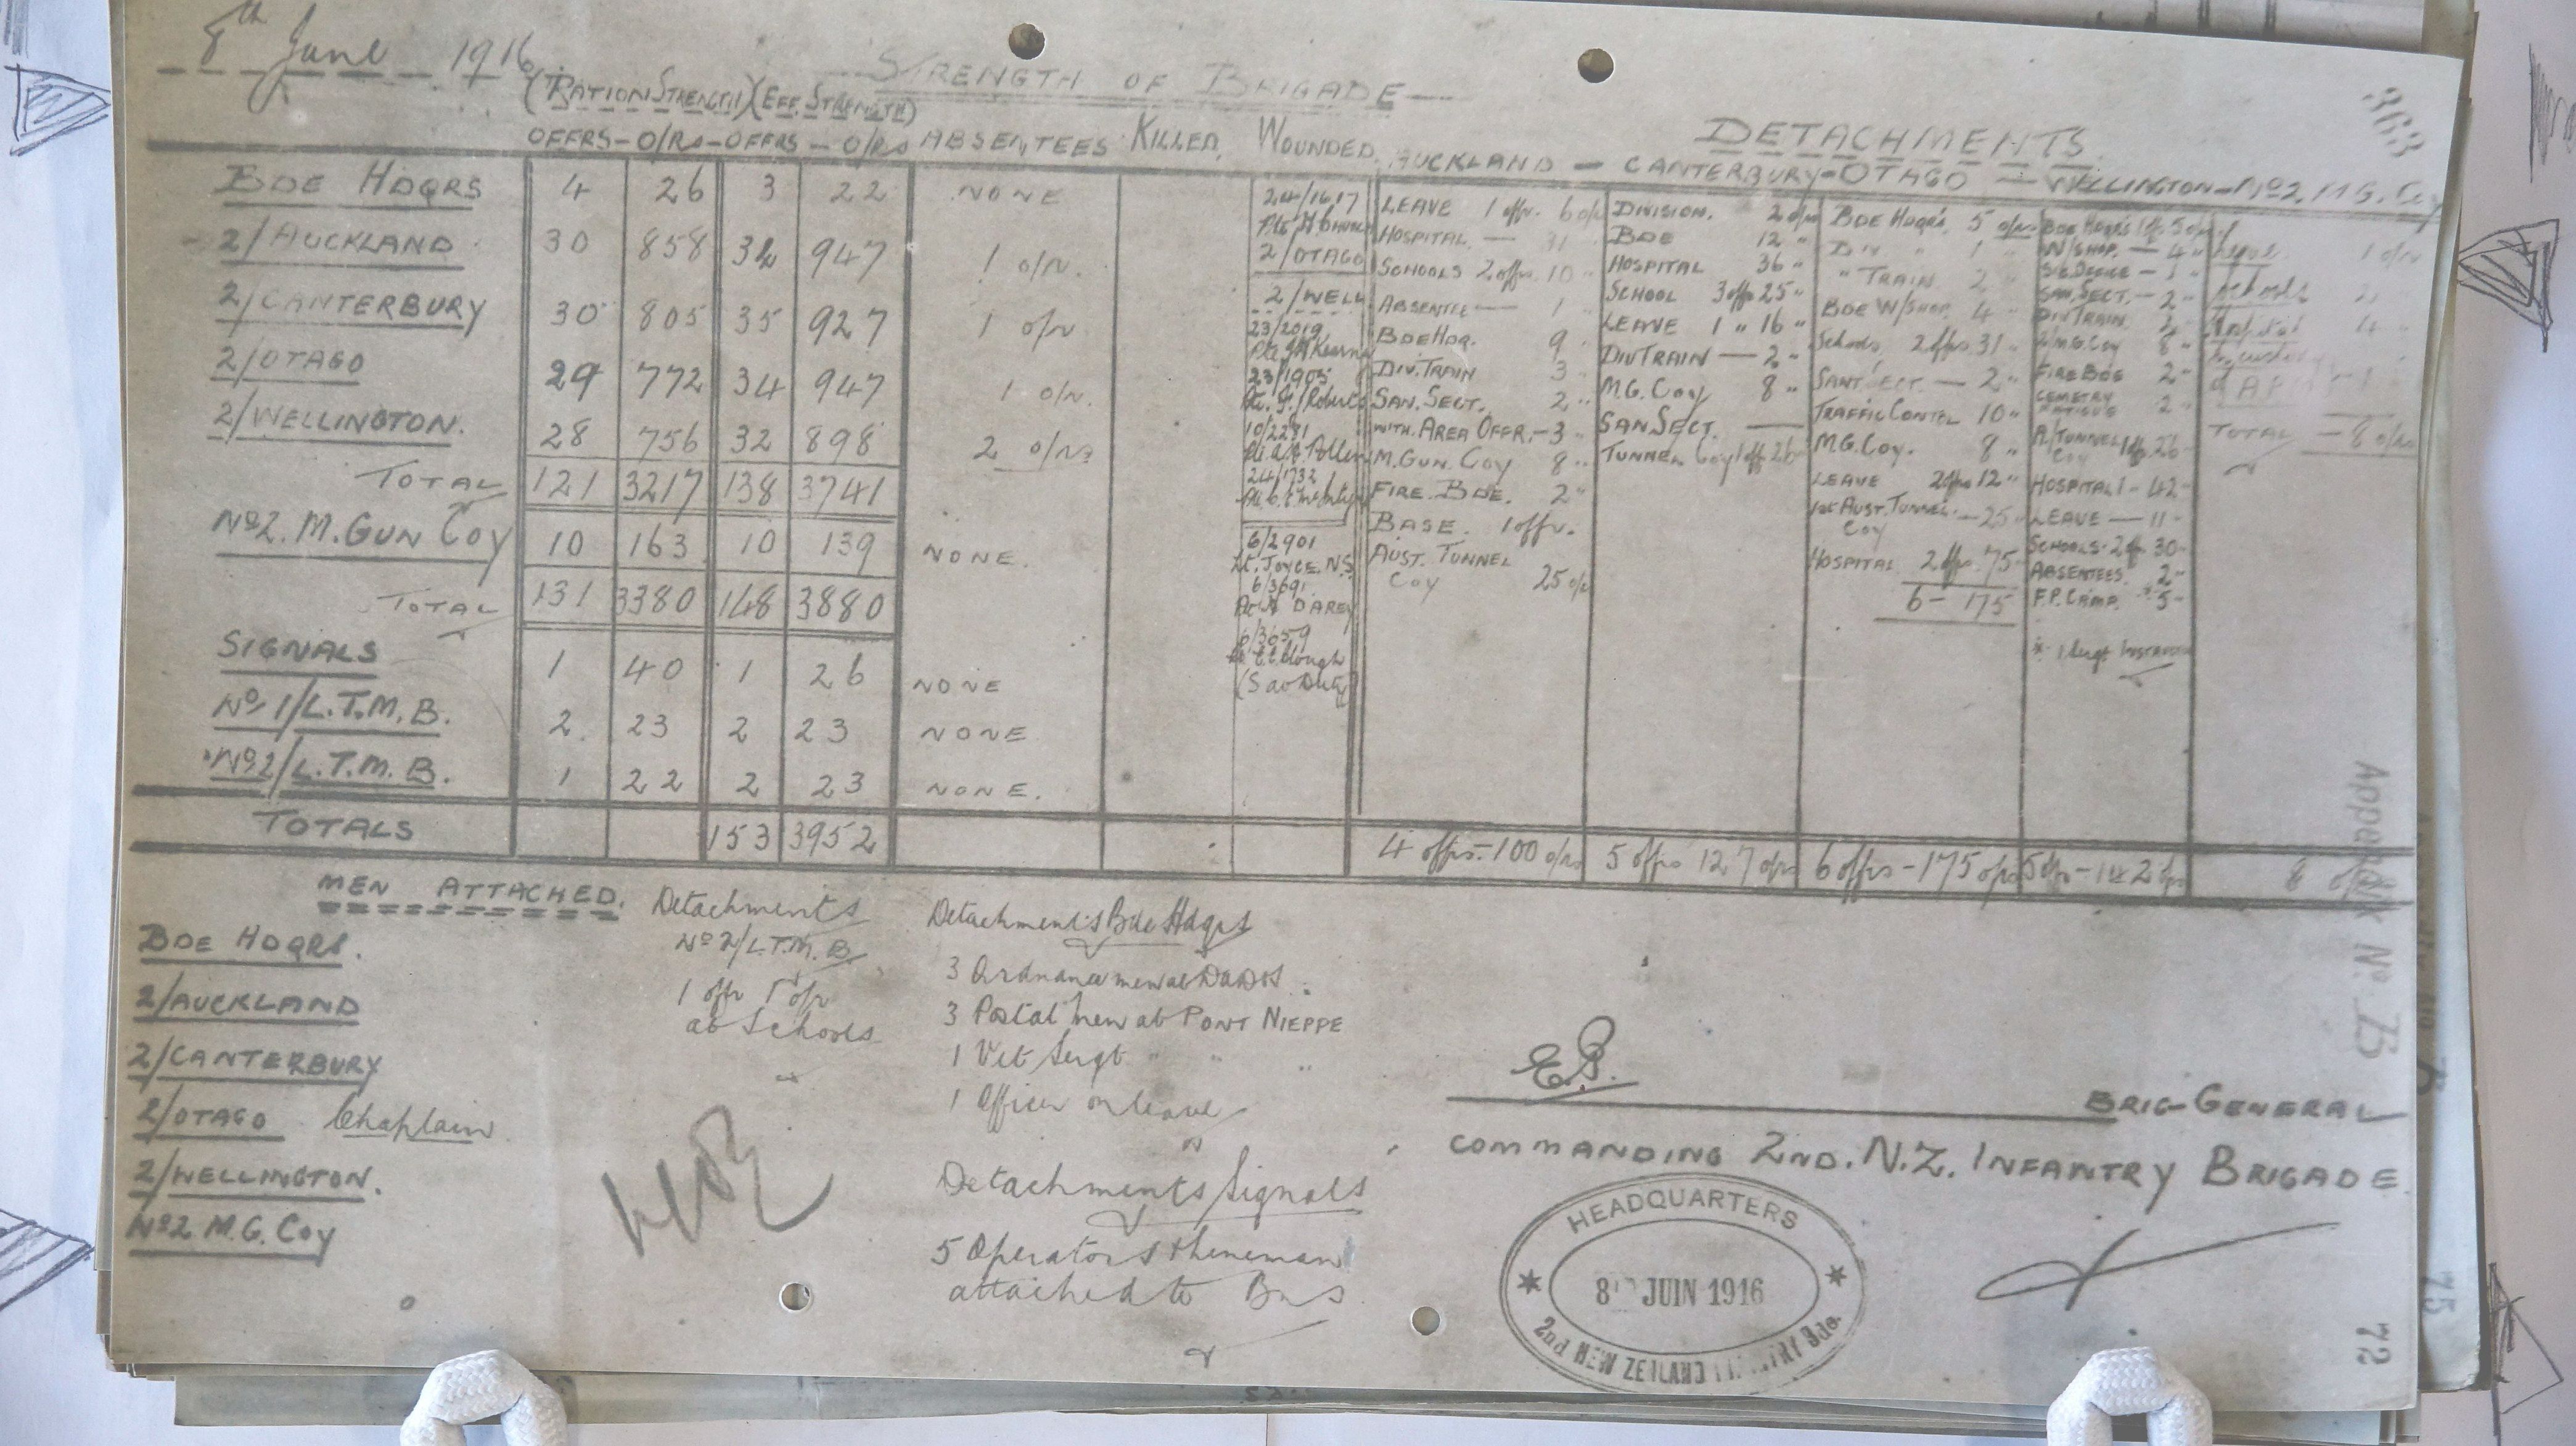 8th June 1916
363
STRENGTH OF BRIGADE
(RATION STRENGTH) (EFF. STRENGTH)
DETACHMENTS
OFFRS - O/Rs - OFFRS - O/Rs ABSENTEES KILLED. WOUNDED. AUCKLAND - CANTERBURY - OTAGO - WELLINGTON - No2. M.G. Coy
BDE HDQRS 4 26 3 22 NONE
2/AUCKLAND 30 858 34 947 1 o/r.
2/CANTERBURY 30 805 35 927 1 o/r
2/OTAGO 29 772 34 947 1 o/r.
2/WELLINGTON. 28 756 32 898 2 o/rs
TOTAL 121 3217 138 3741
No2. M. GUN COY 10 163 10 139 NONE.
TOTAL 131 3380 148 3880
SIGNALS 1 40 1 26 NONE
No 1/L.T.M.B. 2. 23 2 23 NONE
No2/L.T.M.B. 1 22 2 23 NONE.
TOTALS 153 3952
24/1617
2/OTAGO
2/WELL
23/2019
23/1905
10/2281
24/1732
6/2901
Lt. JOYCE. N.S.
6/3691
6/3659
LEAVE 1 offr. 6 o/rs
HOSPITAL - 31
SCHOOLS 2 offrs. 10 "
ABSENTEE - 1
BDE HDR. 9 "
DIV. TRAIN 3 "
SAN. SECT. 2 "
WITH. AREA OFFR. - 3 "
M. GUN. COY 8 "
FIRE. BDE. 2 "
BASE. 1 offr.
AUST. TUNNEL
COY 25 o/r
DIVISION. 2 o/rs
BDE 12 "
HOSPITAL 36 "
SCHOOL 3 offs 25 "
LEAVE 1 " 16 "
DIV TRAIN - 2 "
M.G. COY 8 "
SAN SECT. -
TUNNEL Coy 1 off 26
BDE HDQRS 5 o/rs
DIV " 1 "
" TRAIN 2 "
BDE W/SHOP 4 "
Schools 2 offrs 31 "
SANT SECT. - 2 "
TRAFFIC CONTRL 10 "
M.G. Coy. 8 "
LEAVE 2 offrs 12 "
1st AUST. TUNNEL - 25 "
COY
HOSPITAL 2 offrs. 75
6 - 175
W/SHOP. - 4 "
SAN. SECT. - 2 "
DIV TRAIN
M.G. Coy 8 "
FIRE BDE 2 "
CEMETRY
FATIGUE 2 "
A/TUNNEL 1 off. 26
COY
HOSPITAL 1 - 42
LEAVE - 11 -
SCHOOLS 2 off 30 -
ABSENTEES. 2 "
F.P. CAMP. * 5 -
* 1 Sergt. Instructor
Leave 1 o/r
Schools 2 "
Hospital 4 "
TOTAL - 8 o/rs
4 offrs. - 100 o/rs 5 offrs 127 o/rs 6 offrs - 175 o/rs
Appendix No. B
MEN ATTACHED.
BDE HDQRS.
2/AUCKLAND
2/CANTERBURY
2/OTAGO Chaplain
2/WELLINGTON.
No2 M.G. Coy
Detachments
No 2/L.T.M.B.
1 offr 1 o/r
at Schools
Detachments Bde Hdqrs
3 Ordnance men at DADOS
3 Postal men at PONT NIEPPE
1 Vet Sergt " "
1 Officer on leave
Detachments Signals
5 Operators & lineman
attached to Bns
BRIG-GENERAL
COMMANDING 2ND. N.Z. INFANTRY BRIGADE
HEADQUARTERS
8 JUIN 1916
2nd NEW ZEALAND INFANTRY Bde.
72
75